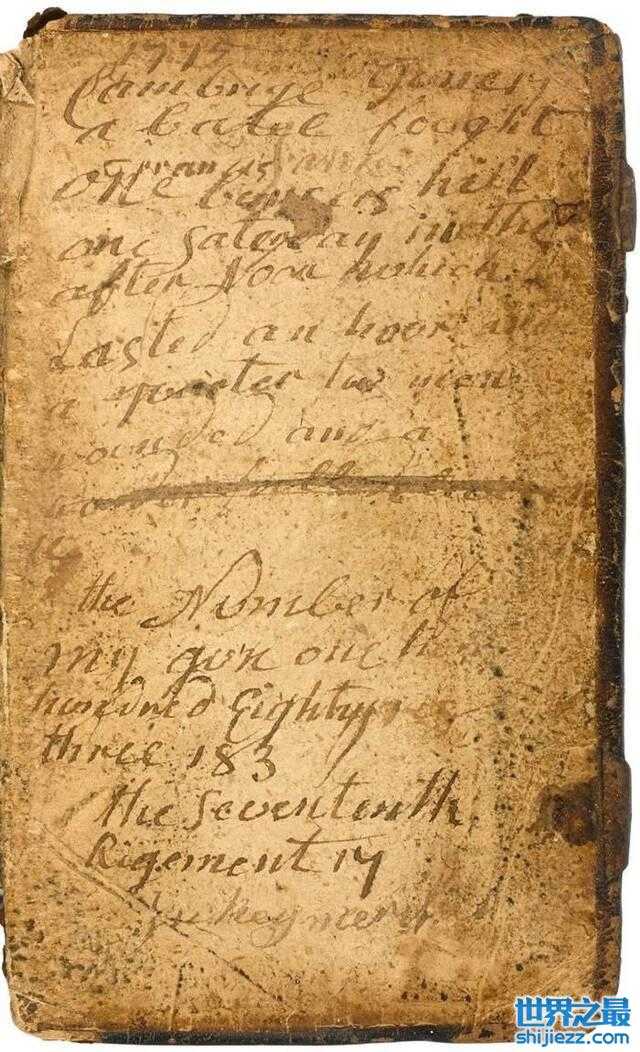 1775
Cambrige June 17
a batel fought
Francis
one bunkers hill
one Saterday in the
after Noon which
Lasted an hoor and
a quarter tw men
wounded and a
the Number of
my gun one
hundred Eighty
three 183
the Sevententh
Rigement 17
世界之最
shijiezz.com